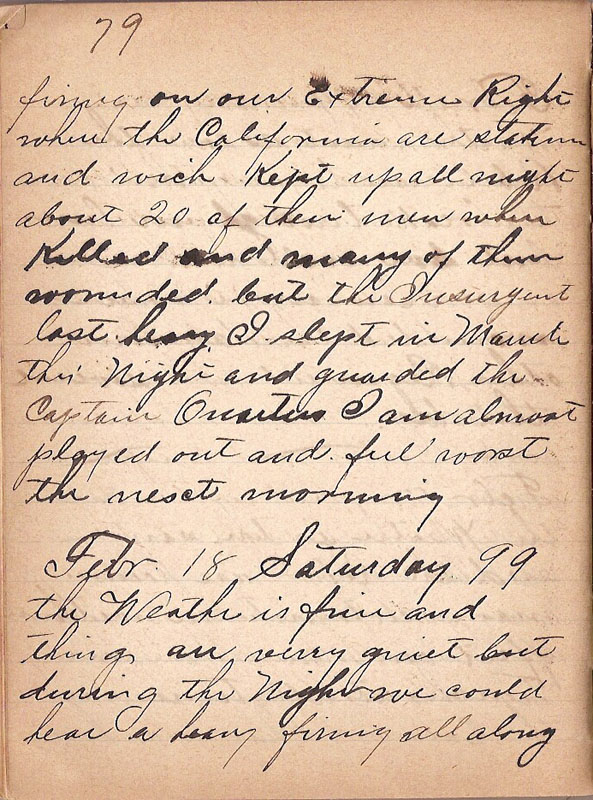 79
firing on our Extreme Right
where the California are station
and wich Kept up all night
about 20 of their men when
Killed and many of them
wounded but the Insurgent
lost heavy I slept in
this Night and guarded the
Captain Quarters I am almost
played out and feel worst
the nesct morning
Febr. 18 Saturday 99
the Weathe is fine and
things are verry quiet but
during the Night we could
hear a heavy firing all along